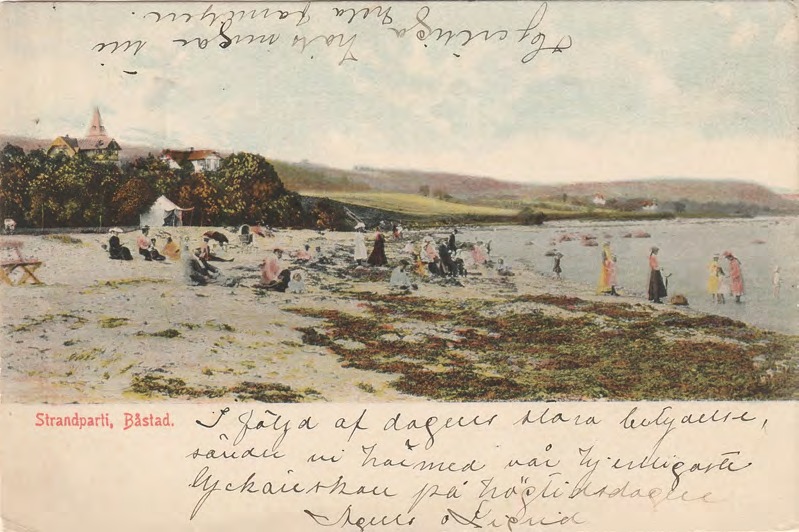 Hjertliga hälsningar till
hela familjen.
Strandparti, Båstad.
I följd af dagens stora betydelse,
sända vi härmed vår hjertligaste
lyckönskan på högtidsdagen
Agnes o Sigrid